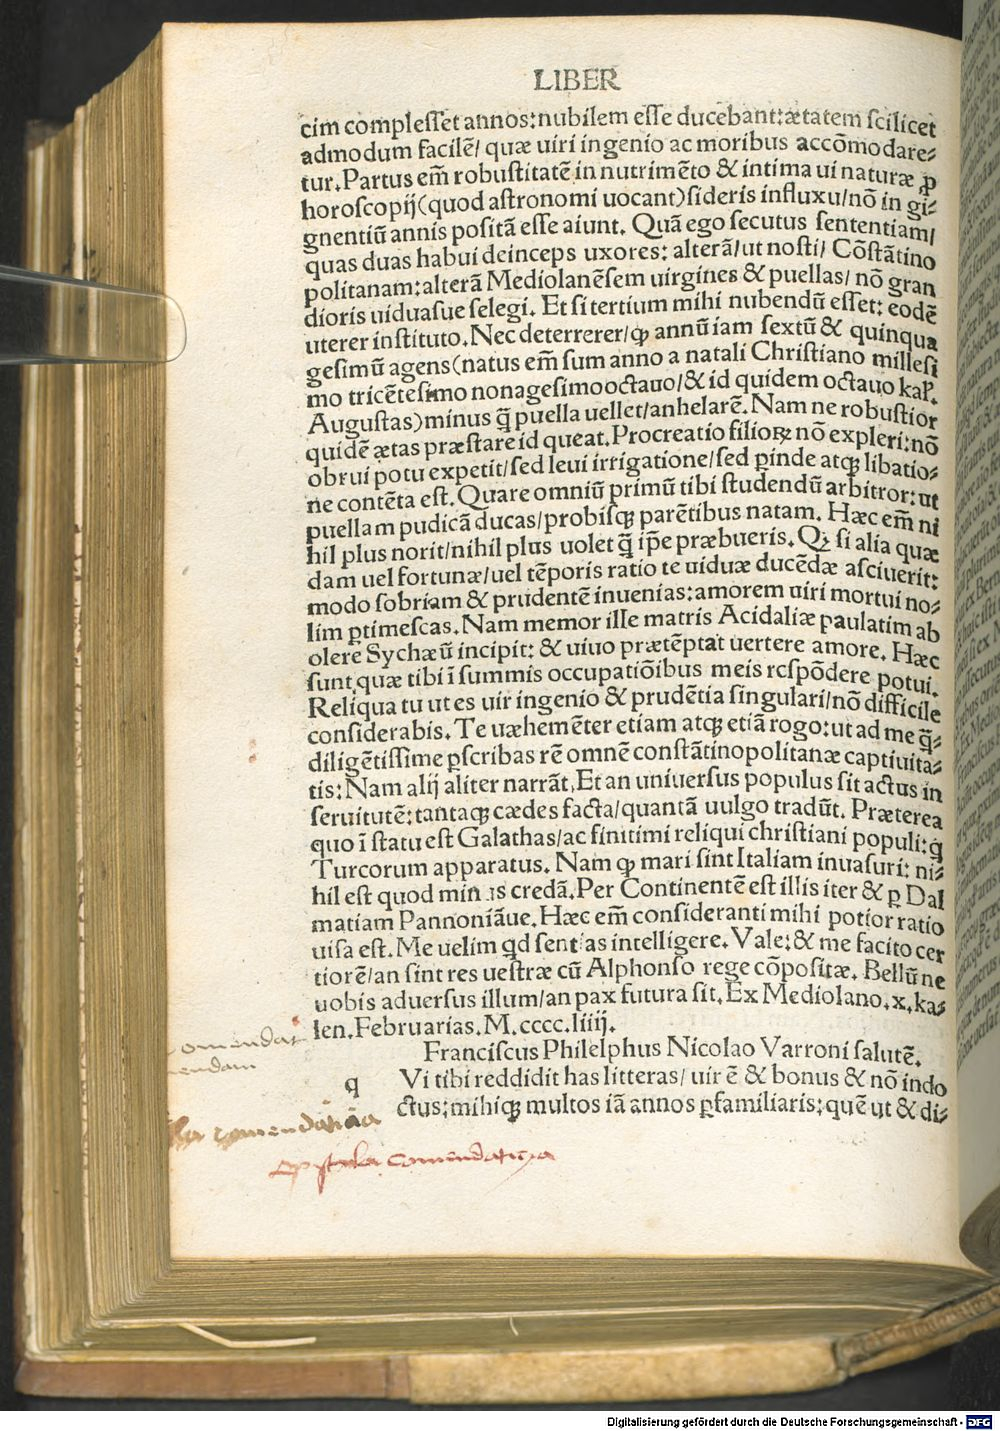 LIBER
cim complesſet annos: nubilem esſe ducebant: ætatem ſcilicet
admodum facilē/ quæ uiri ingenio ac moribus accōmodare⸗
tur. Partus em̄ robuſtitatē in nutrimēto & intima ui naturæ ꝓ
horoſcopij (quod aſtronomi uocant) ſideris influxu/ nō in gi⸗
gnentiū annis poſitā esſe aiunt. Quā ego ſecutus ſententiam/
quas duas habui deinceps uxores: alterā/ ut noſti/ Cōſtātino
politanam: alterā Mediolanēſem uirgines & puellas/ nō gran
dioris uiduasue ſelegi. Et ſi tertium mihi nubendū esſet: eodē
uterer inſtituto. Nec deterrerer/ ꝙ annū iam ſextū & quinqua
geſimū agens (natus em̄ ſum anno a natali Chriſtiano milleſi
mo tricēteſimo nonageſimooctauo/ & id quidem octauo kaꝉ.
Auguſtas) minus q̄ puella uellet/ anhelarē. Nam ne robuſtior
quidē ætas præſtare id queat. Procreatio filioꝝ nō expleri: nō
obrui potu expetit/ ſed leui irrigatione/ ſed ꝑinde atqꝫ libatio⸗
ne contēta eſt. Quare omniū primū tibi ſtudendū arbitror: ut
puellam pudicā ducas/ probiſqꝫ parētibus natam. Hæc em̄ ni
hil plus norit/ nihil plus uolet q̄ ip̄e præbueris. Qꝫ ſi alia quæ
dam uel fortunæ/ uel tēporis ratio te uiduæ ducēdæ aſciuerit:
modo ſobriam & prudentē inuenias: amorem uiri mortui no⸗
lim ꝑtimeſcas. Nam memor ille matris Acidaliæ paulatim ab
olere Sychæū incipit: & uiuo prætēptat uertere amore. Hæc
ſunt quæ tibi ī ſummis occupatiōibus meis reſpōdere potui.
Reliqua tu ut es uir ingenio & prudētia ſingulari/ nō difficile
conſiderabis. Te uæhemēter etiam atqꝫ etiā rogo: ut ad me q̄⸗
diligētiſſime ꝑſcribas rē omnē conſtātinopolitanæ captiuita⸗
tis: Nam alij aliter narrāt. Et an uniuerſus populus ſit actus in
ſeruitutē: tantaqꝫ cædes facta/ quantā uulgo tradūt. Præterea
quo ī ſtatu eſt Galathas/ ac finitimi reliqui chriſtiani populi: q̄
Turcorum apparatus. Nam ꝙ mari ſint Italiam inuaſuri: ni⸗
hil eſt quod minus credā. Per Continentē eſt illis iter & ꝑ Dal
matiam Pannoniāue. Hæc em̄ conſideranti mihi potior ratio
uiſa eſt. Me uelim qd ſentias intelligere. Vale: & me facito cer
tiorē/ an ſint res ueſtræ cū Alphonſo rege cōpoſitæ. Bellū ne
uobis aduerſus illum/ an pax futura ſit. Ex Mediolano. x. ka⸗
len. Februarias. M. cccc. liiij.
Franciſcus Philelphus Nicolao Varroni ſalutē.
q Vi tibi reddidit has litteras/ uir ē & bonus & nō indo
ctus: mihiqꝫ multos iā annos ꝑfamiliaris: quē ut & di⸗
epistula comendaticia
Digitalisierung gefördert durch die Deutsche Forschungsgemeinschaft - DFG